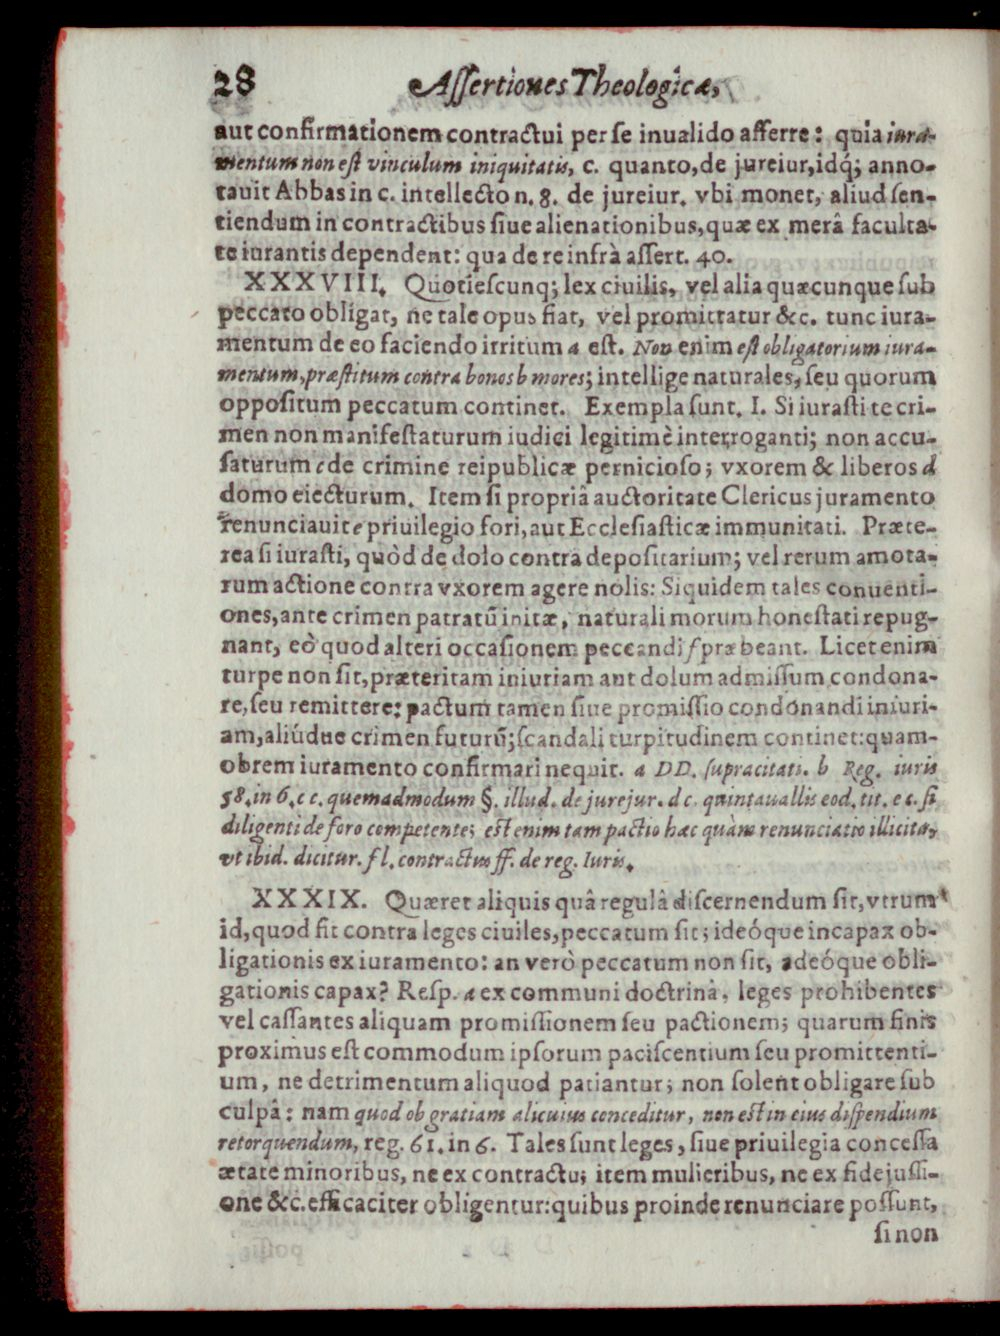 28 Aſſertiones Theologicæ,
aut confirmationem contractui per se inualido afferre: quia iura-
mentum non eſt vinculum iniquitatis, c. quanto, de jureiur, idq́; anno-
tauit Abbas in c. intellecto n. 8. de jureiur. vbi monet, aliud ſen-
tiendum in contractibus ſiue alienationibus, quæ ex merâ faculta-
te iurantis dependent: qua de re infrà aſſert. 40.
XXXVIII. Quotieſcunq; lex ciuilis, vel alia quæcunque ſub
peccato obligat, ne tale opus fiat, vel promittatur &c. tunc iura-
mentum de eo faciendo irritum a eſt. Non enim eſt obligatorium iura-
mentum, præſtitum contra bonos b mores; intellige naturales, ſeu quorum
oppoſitum peccatum continet. Exempla ſunt. I. Si iuraſti te cri-
men non manifeſtaturum iudici legitimè interroganti; non accu-
ſaturum c de crimine reipublicæ pernicioſo; vxorem & liberos d
domo eiecturum. Item ſi propriâ auctoritate Clericus juramento
renunciauit e priuilegio fori, aut Eccleſiaſticæ immunitati. Præte-
rea ſi iuraſti, quòd de dolo contra depoſitarium; vel rerum amota-
rum actione contra vxorem agere nolis: Siquidem tales conuenti-
ones, ante crimen patratū initæ, naturali morum honeſtati repug-
nant, eò quod alteri occaſionem peccandi f præbeant. Licet enim
turpe non ſit, præteritam iniuriam aut dolum admiſſum condona-
re, ſeu remittere: pactum tamen ſiue promiſſio condonandi iniuri-
am, aliúdue crimen futurū; ſcandali turpitudinem continet: quam-
obrem iuramento confirmari nequit. a DD. ſupracitati. b Reg. iuris
58. in 6. c c. quemadmodum §. illud. de jurejur. d c. quintauallis eod. tit. e c. ſi
diligenti de foro competente; eſt enim tam pactio hæc quàm renunciatio illicita,
vt ibid. dicitur. f l. contractus ff. de reg. Iuris.
XXXIX. Quæret aliquis quâ regulâ diſcernendum ſit, vtrum
id, quod fit contra leges ciuiles, peccatum ſit; ideóque incapax ob-
ligationis ex iuramento: an verò peccatum non ſit, adeóque obli-
gationis capax? Reſp. a ex communi doctrinâ, leges prohibentes
vel caſſantes aliquam promiſſionem ſeu pactionem; quarum finis
proximus eſt commodum ipſorum paciſcentium ſeu promittenti-
um, ne detrimentum aliquod patiantur; non ſolent obligare ſub
culpâ: nam quod ob gratiam alicuius conceditur, non eſt in eius diſpendium
retorquendum, reg. 61. in 6. Tales ſunt leges, ſiue priuilegia conceſſa
ætate minoribus, ne ex contractu; item mulieribus, ne ex fidejuſſi-
one &c. efficaciter obligentur: quibus proinde renunciare poſſunt,
ſi non